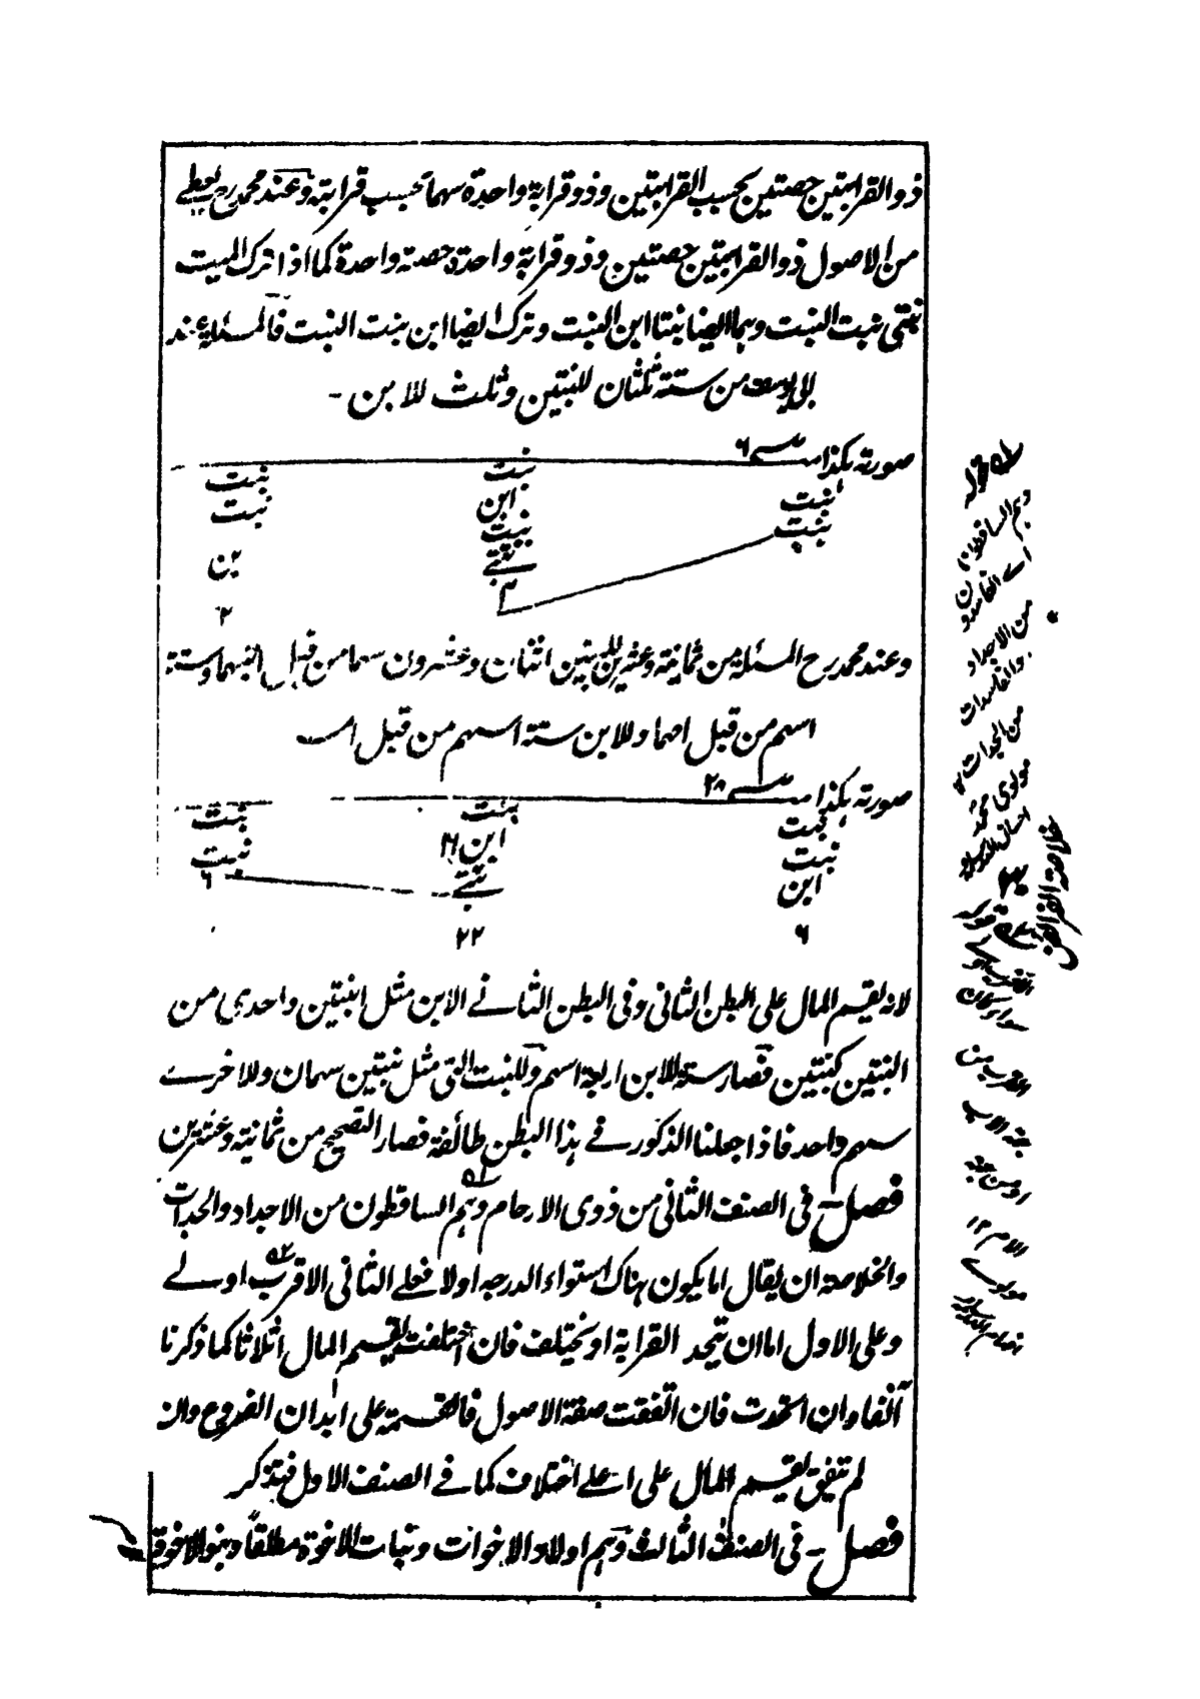 ذو القرابتين حصتين بحسب القرابتين وذو قرابة واحدة سهما بحسب قرابته وعند محمد رح يعطى
من الاصول ذو القرابتين حصتين وذو قرابة واحدة حصته واحدة كما اذا ترك الميت
بنتى بنت البنت وهما ايضا بنتا ابن البنت وترك ايضا ابن بنت البنت فالمسئلة عند
ابى يوسف من ستة ثلثان للبنتين وثلث للابن -
صورته هكذا مسـ ۶
بنت بنت
بنت ابن بنت
بنت بنت
بنتى بن
۴ ۲
وعند محمد رح المسئلة من ثمانية وعشرين للبنتين اثنان وعشرون سهما من قبل ابيهما وستة
اسهم من قبل امهما وللابن ستة اسهم من قبل امه
صورته هكذا مسـ ۲۸
بنت بنت بنت
بنت ابن ۱۶ بنت
ابن بنتى ۶
۶ ۲۲
لانه يقسم المال على البطن الثانى وفى البطن الثانے الابن مثل ابنتين واحدى من
البنتين كبنتين فصار ستة للابن اربعة اسهم وللبنت التى مثل بنتين سهمان وللاخرے
سهم واحد فاذا جعلنا الذكور فے هذا البطن طائفة فصار التصحيح من ثمانية وعشرين
فصل - فى الصنف الثانى من ذوى الارحام وهم الساقطون من الاجداد والجدات
والخلاصة ان يقال اما يكون هناك استواء الدرجة اولا فعلے الثانى الاقرب اولے
وعلى الاول اما ان يتحد القرابة او يختلف فان اختلفت يقسم المال اثلاثا كما ذكرنا
آنفا وان اتحدت فان اتفقت صفة الاصول فالقسمة على ابدان الفروع وان
لم تتفق يقسم المال على اعلے اختلاف كما فے الصنف الاول فتذكر
فصل - فى الصنف الثالث وهم اولاد الاخوات وبنات الاخوة مطلقا وبنو الاخوة
۵۱ قوله
وهم الساقطون
اے الفاسدون
من الاجداد
والفاسدات
من الجدات ۱۲
مولوى محمد
۵۲ قوله
الاقرب
سواء كان
الاقرب من
جهة الاب
او من جهة
الام ۱۲
مولوى